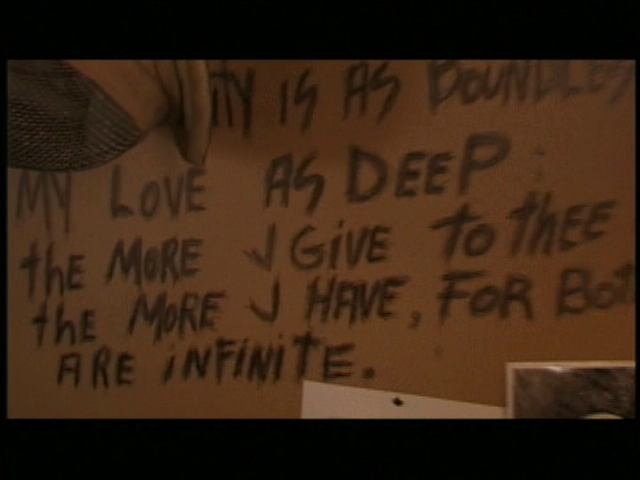 IS AS BOUNDLES
MY LOVE AS DEEP:
the MORE I GiVE to thEE
the MORE I HAVE, FOR BOT
ARE iNFiNitE.